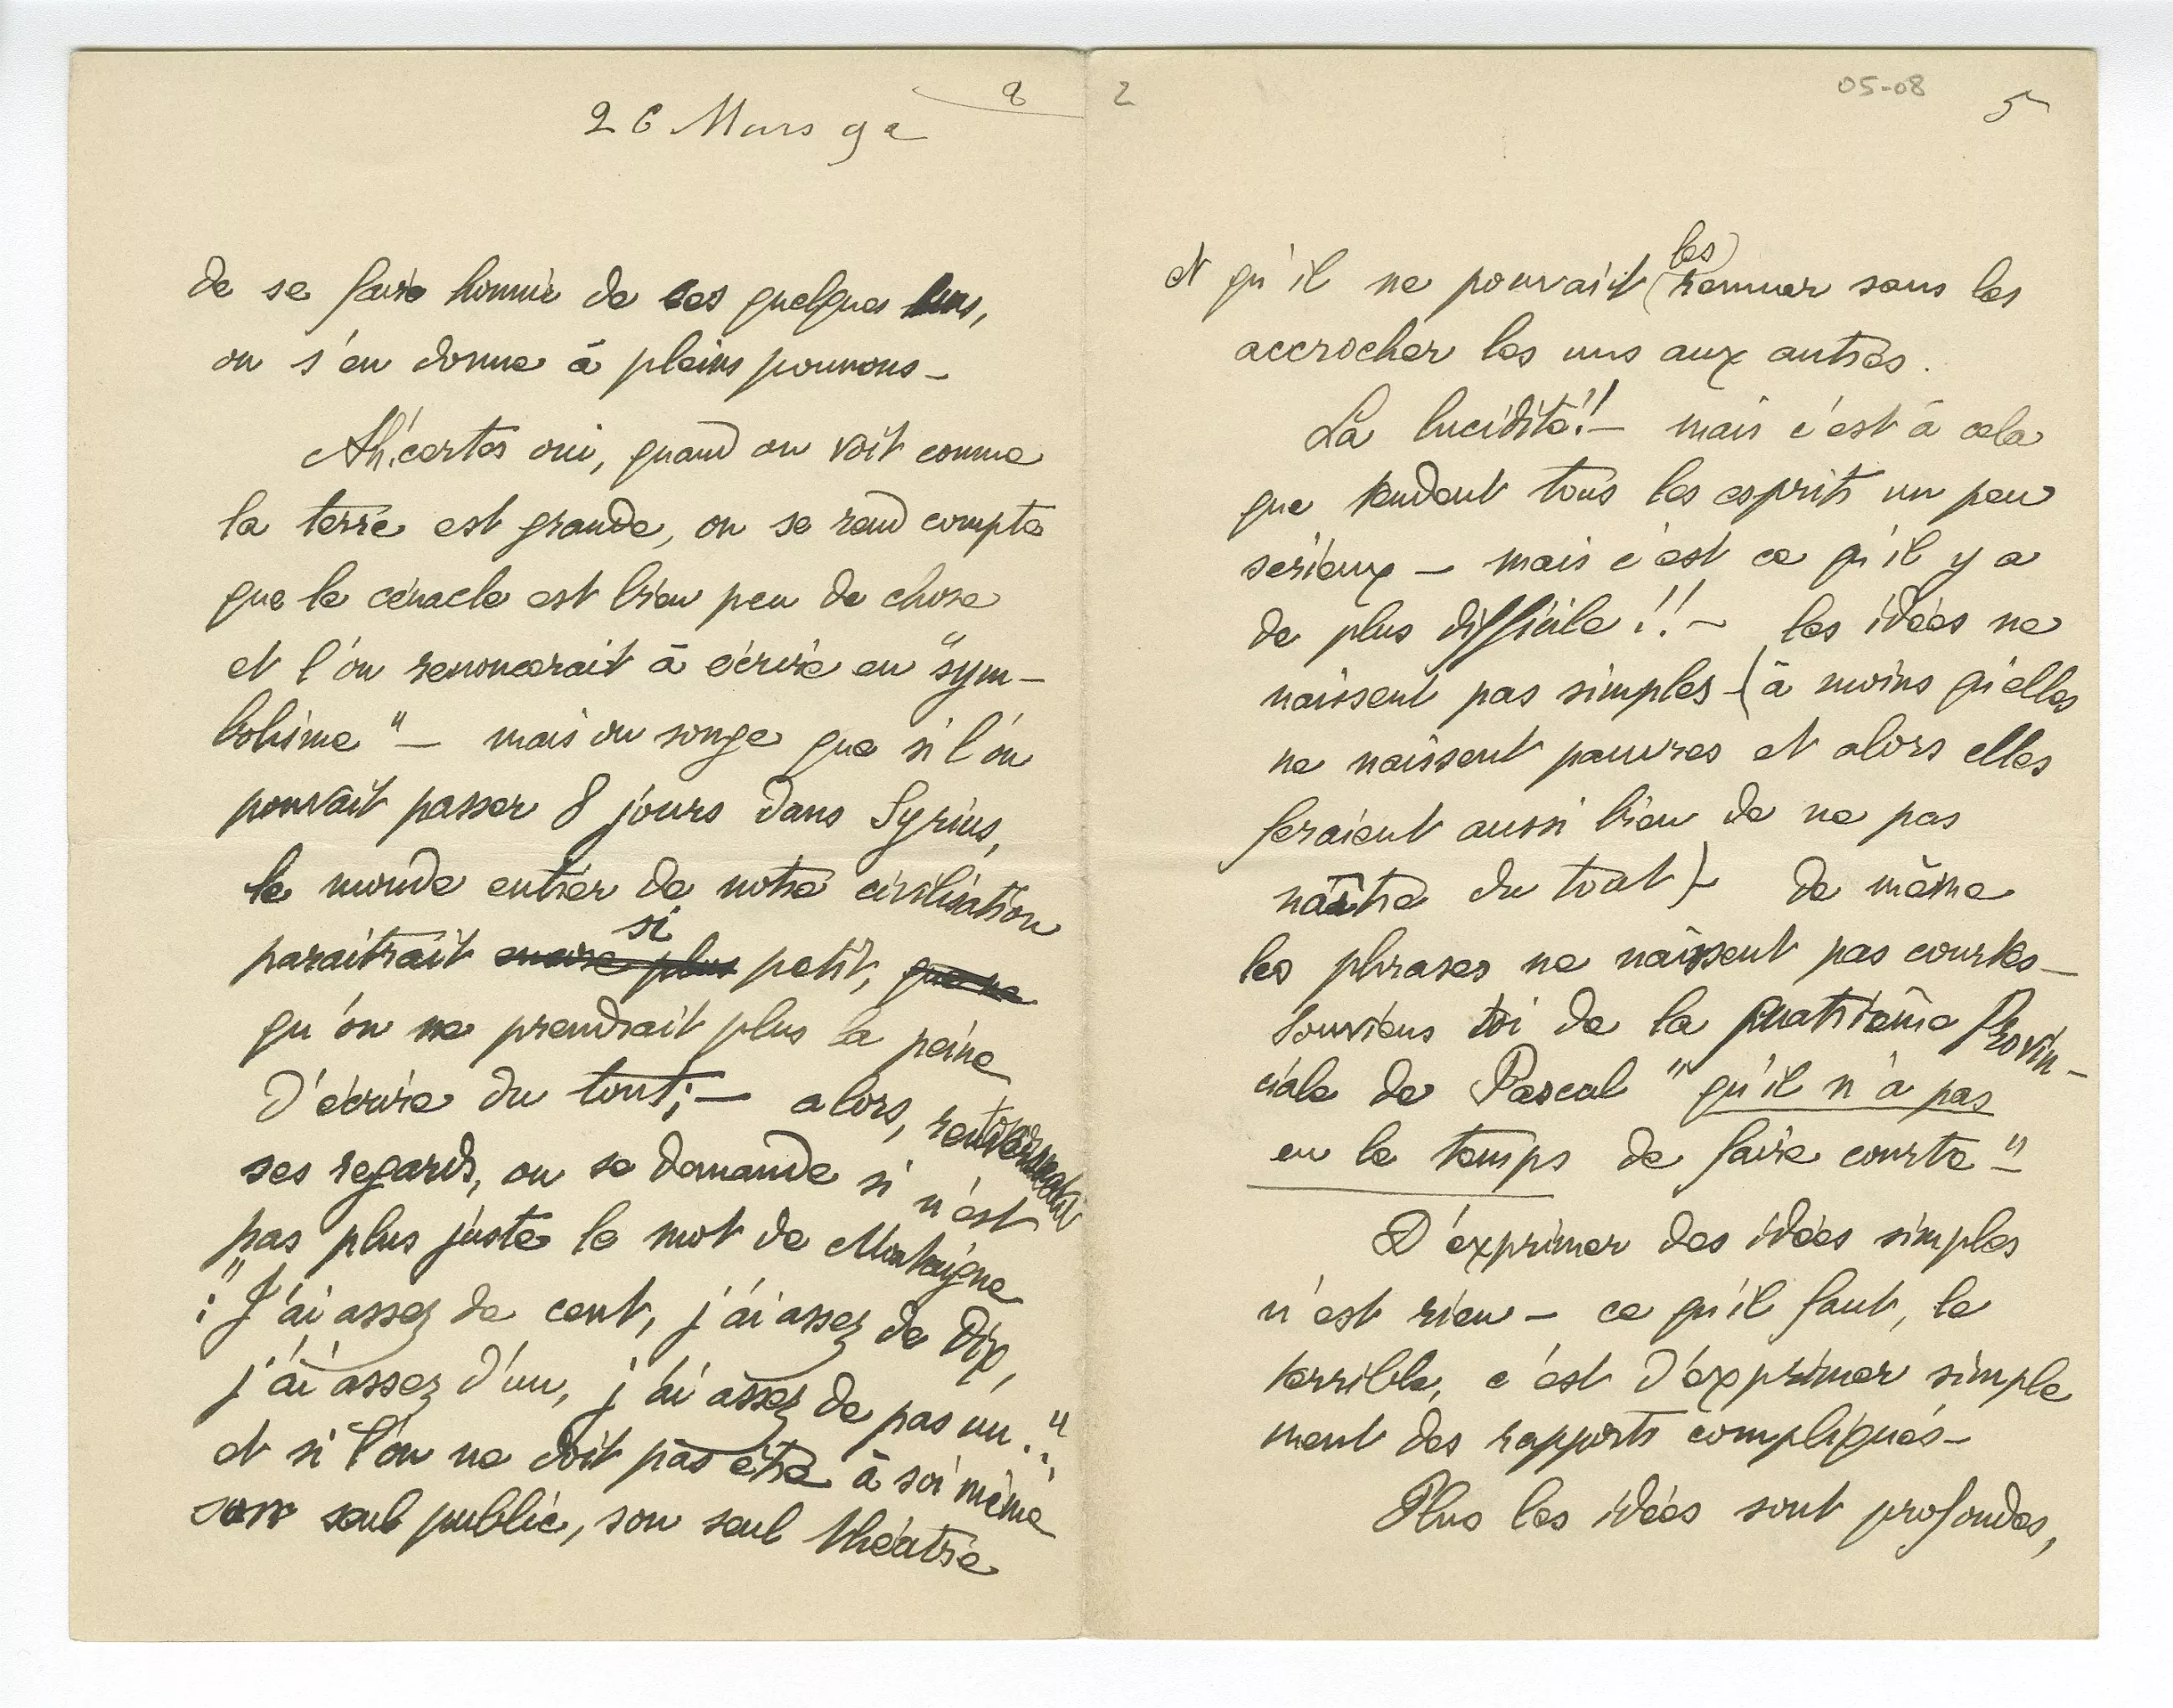 8
26 Mars 92
de se faire honnir de ces quelques uns,
on s'en donne à pleins poumons —
Ah! certes oui, quand on voit comme
la terre est grande, on se rend compte
que le cénacle est bien peu de chose
et l'on renoncerait à écrire en "sym-
bolisme" — mais on songe que si l'on
pouvait passer 8 jours dans Syrius,
le monde entier de notre civilisation
paraitrait encore plus si petit, que ne
qu'on ne prendrait plus la peine
d'écrire du tout; — alors,
ses regards, on se demande si n'est
pas plus juste le mot de Montaigne
: "J'ai assez de cent, j'ai assez de dix,
j'ai assez d'un, j'ai assez de pas un."
et si l'on ne doit pas être à soi même
son seul public, son seul théâtre
2
05-08
5
et qu'il ne pouvait les remuer sans les
accrocher les uns aux autres.
La lucidité!! — mais c'est à cela
que tendent tous les esprits un peu
sérieux — mais c'est ce qu'il y a
de plus difficile!! — les idées ne
naissent pas simples — (à moins qu'elles
ne naissent pauvres et alors elles
feraient aussi bien de ne pas
naître du tout) — de même
les phrases ne naissent pas courtes —
Souviens toi de la quatrième Provin-
ciale de Pascal "qu'il n'a pas
eu le temps de faire courte" —
D'exprimer des idées simples
n'est rien — ce qu'il faut, le
terrible, c'est d'exprimer simple
ment des rapports compliqués —
Plus les idées sont profondes,